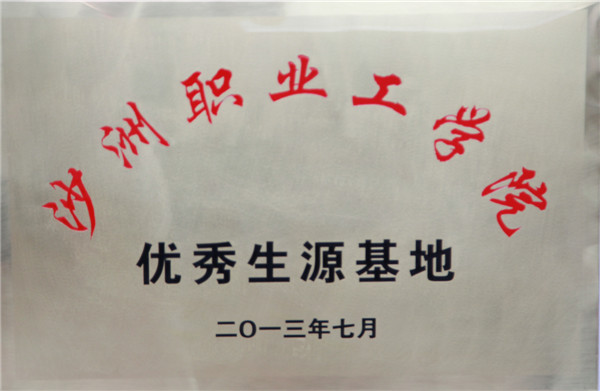 沙洲职业工学院
优秀生源基地
二〇一三年七月